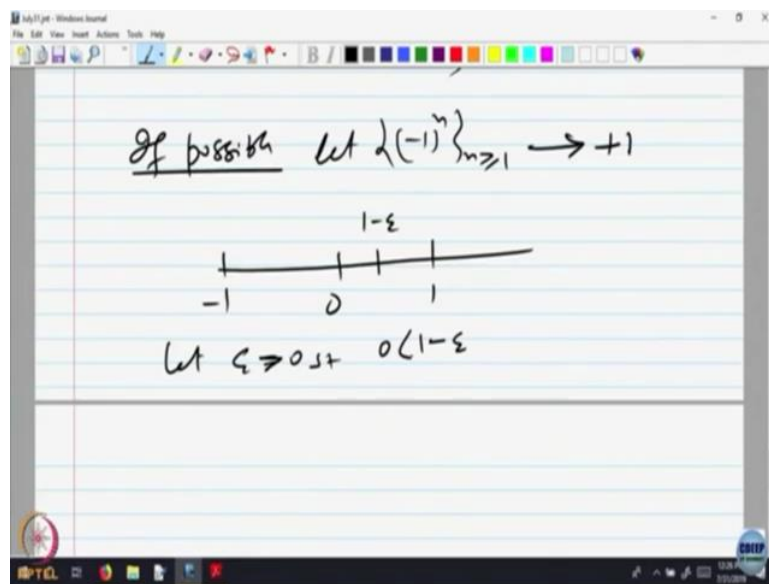 July31.jnt - Windows Journal
File Edit View Insert Actions Tools Help
B I
If possible let {(-1)^n}_{n≥1} → +1
1-ε
-1 0 1
let ε>0 st 0<1-ε
NPTEL
CDEEP
7/31/2019